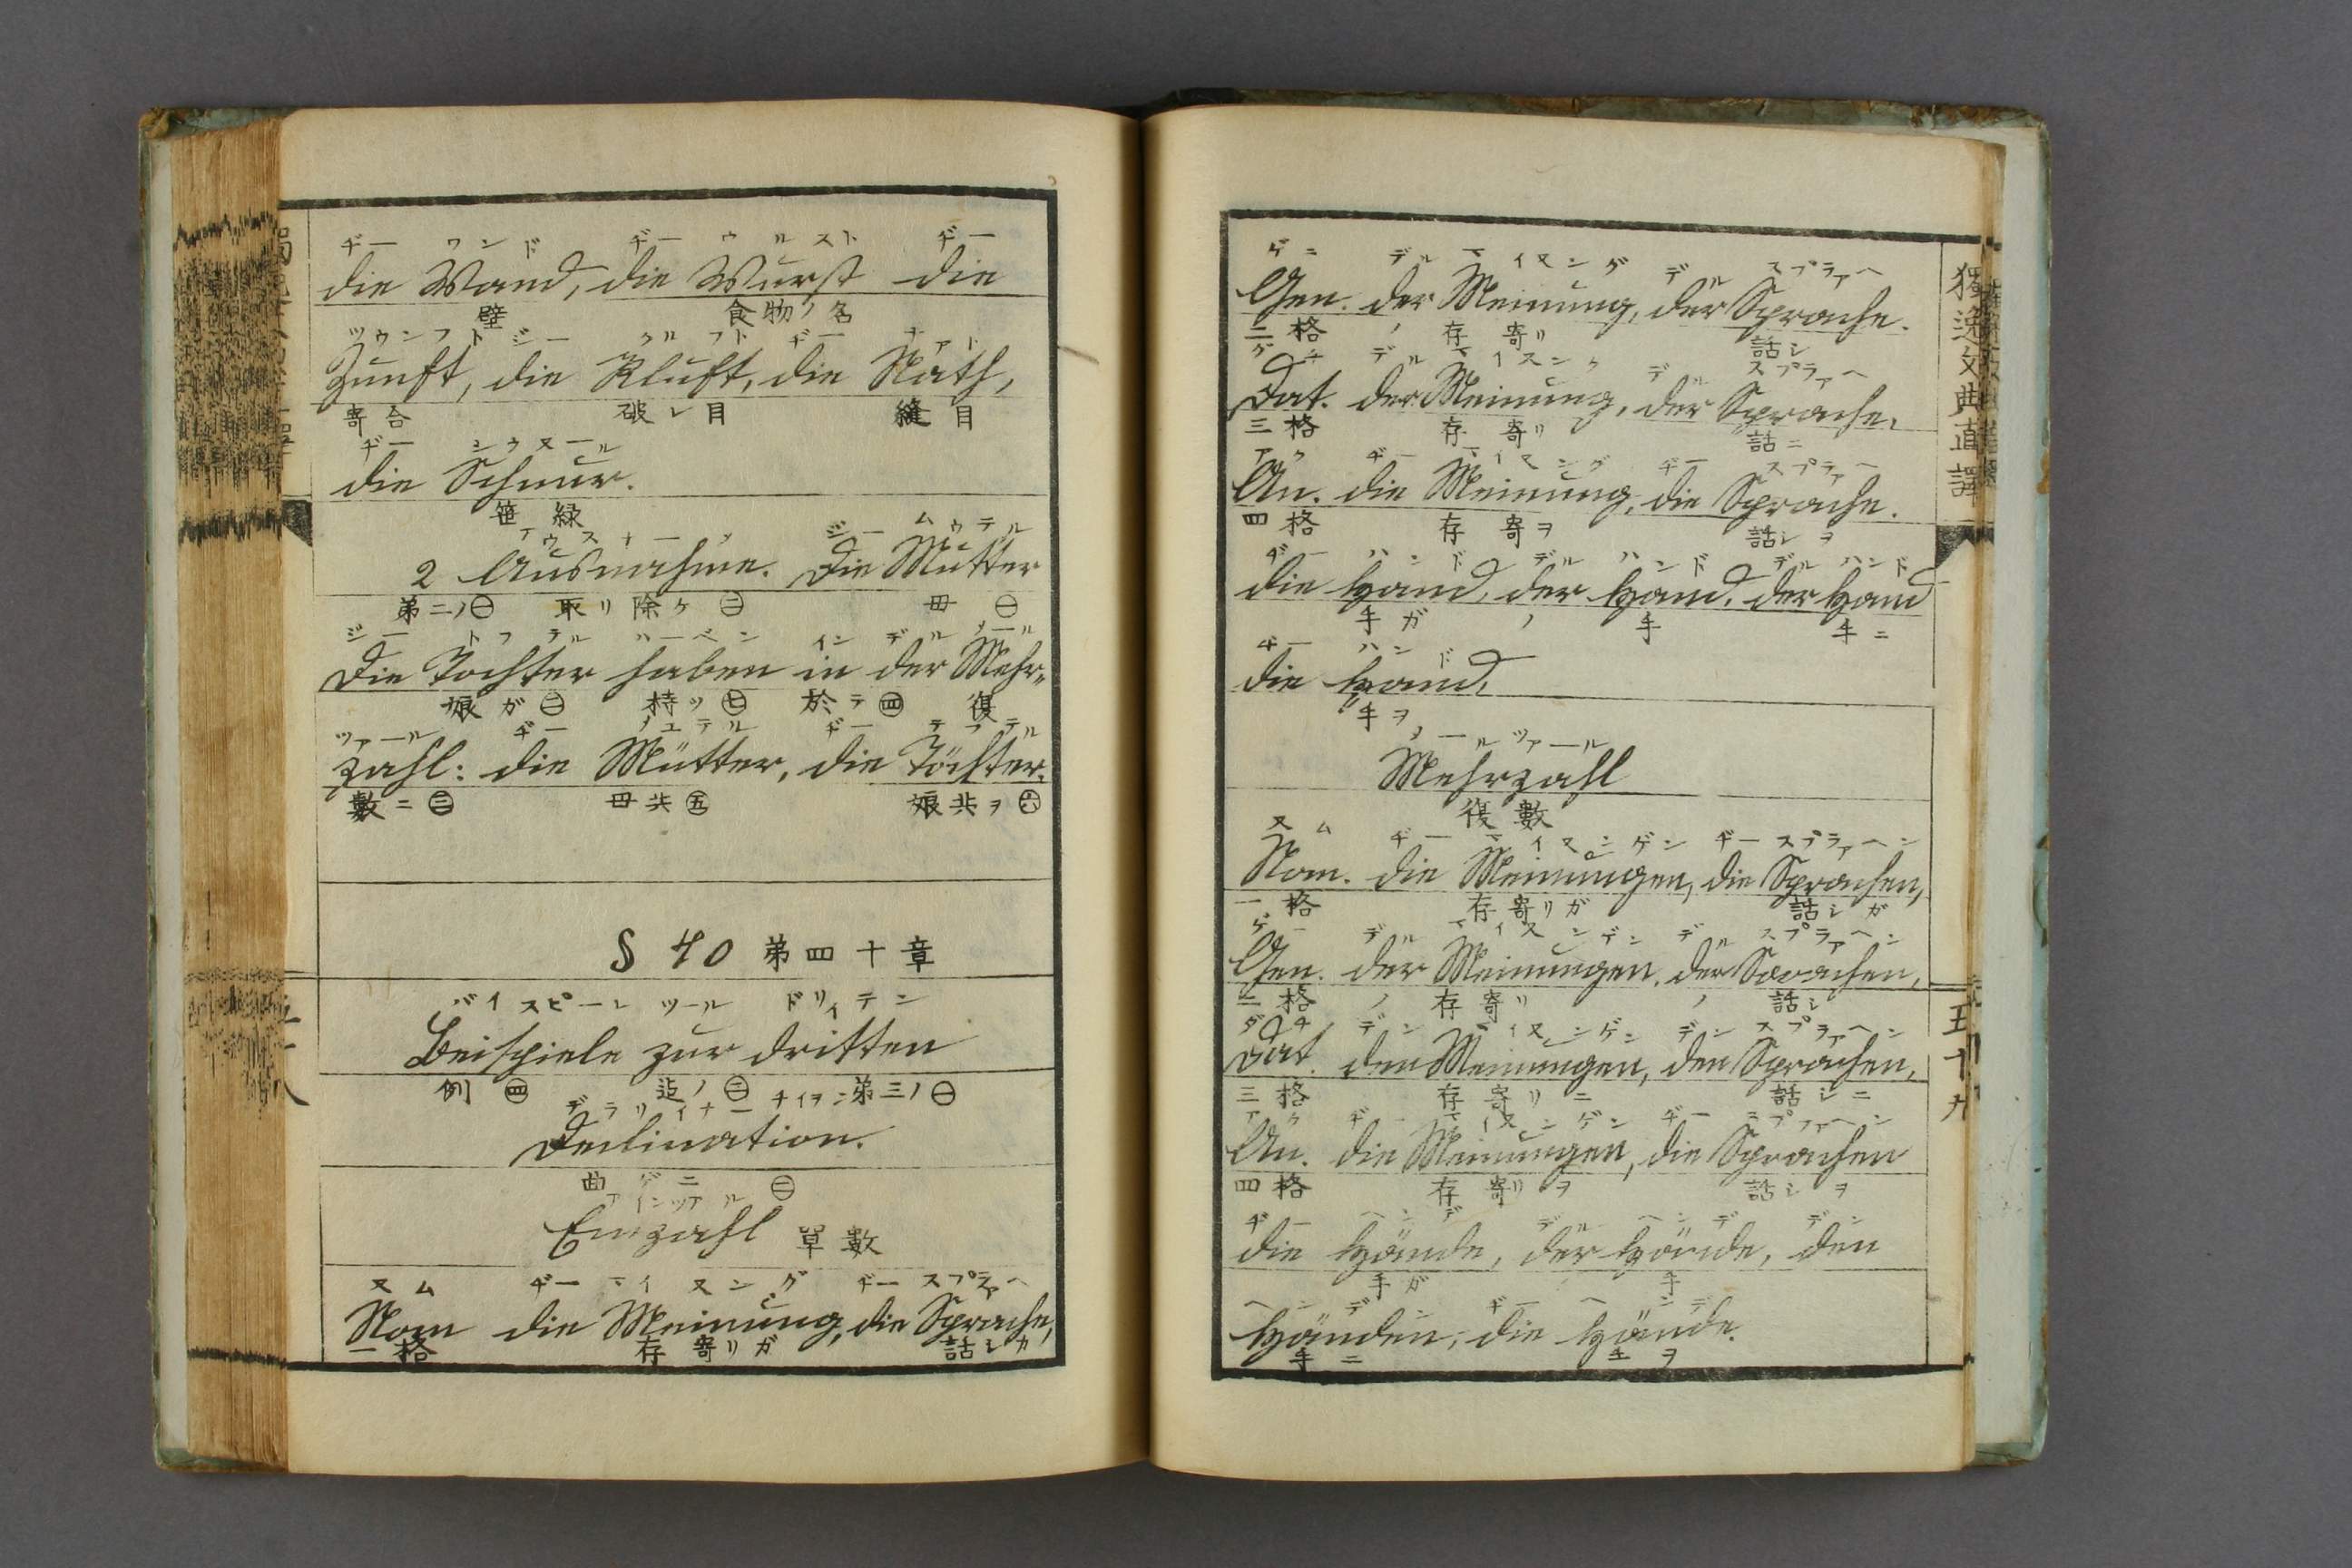 ヂー ワンド ヂー ウルスト ヂー
die Wand, die Wurst die
壁 食物ノ名
ツウンフト ジー クルフト ヂー ナアト
Zunft, die Kluft, die Nath,
寄合 破レ目 縫目
ヂー シウヌール
die Schnur.
笹緑
2 Ausnahme. Die Mutter
第二ノ㊀ 取リ除ケ㊁ 母 ㊀
ジー トフテル ハーベン イン デル メール
Die Tochter haben in der Mehr-
娘ガ㊁ 持ツ㊆ 於テ㊃ 復
ツァール ヂー メユテル ヂー テフテル
zahl: die Mütter, die Töchter.
數ニ㊂ 母共㊄ 娘共ヲ㊅
§ 40 第四十章
バイスピーレ ツール ドリイテン
Beispiele zur dritten
例 ㊃ 迄ノ㊁ 第三ノ㊀
Declination.
曲ゲニ ㊁
アインツアール
Einzahl 單數
ヌム ヂー マイヌング ヂー スプラアヘ
Nom die Meinung, die Sprache,
一格 存寄リガ 話シガ
獨逸文典直譯
五十九
ゲニ デル マイヌング デル スプラアヘ
Gen. der Meinung, der Sprache.
二格 ノ 存寄リ 話シ
デル マイヌング デル スプラアヘ
Dat. der Meinung, der Sprache.
三格 存寄リ 話ニ
アク ヂー マイヌング ヂー スプラアヘ
Au. die Meinung, die Sprache.
四格 存寄ヲ 話シヲ
ヂー ハンド デル ハンド デル ハンド
die Hand, der Hand, der Hand
手ガ ノ 手 手ニ
ヂー ハンド
die Hand,
手ヲ
メールツアール
Mehrzahl
復數
ヌム ヂー マイヌンゲン ヂー スプラアヘン
Nom. die Meinungen, die Sprachen,
一格 存寄リガ 話シガ
デル マイヌンゲン デル スプラアヘン
Gen. der Meinungen, der Sprachen,
二格 ノ 存寄リ ノ 話シ
デン マイヌンゲン デン スプラアヘン
Dat. den Meinungen, den Sprachen,
三格 存寄リニ 話シニ
アク ヂー マイヌンゲン ヂー スプラアヘン
Au. die Meinungen, die Sprachen
四格 存寄リヲ 話シヲ
ヂー ヘンデ デル ヘンデ デン
die Hände, der Hände, den
手ガ 手
ヘンデン ヂー ヘンデ
Händen, die Hände.
手ニ 手ヲ